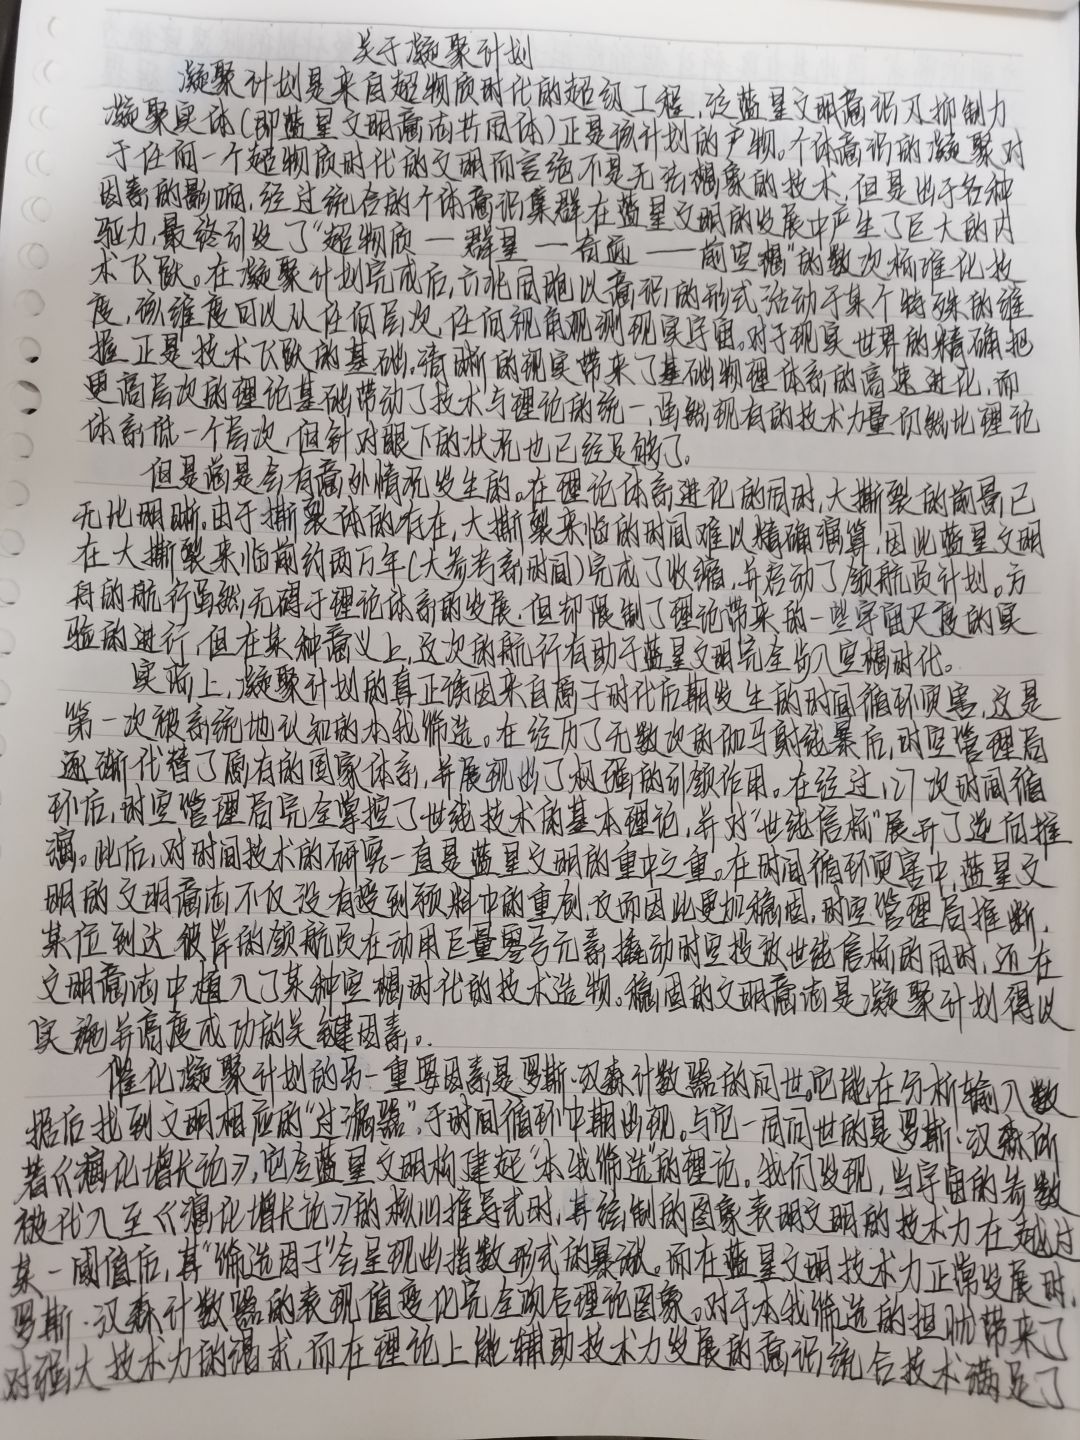 关于凝聚计划
凝聚计划是来自超物质时代的超级工程,泛蓝星文明意识及抑制力
凝聚实体(即蓝星文明意志共同体)正是该计划的产物。个体意识的凝聚对
于任何一个超物质时代的文明而言绝不是无法想象的技术,但是出于各种
因素的影响,经过统合的个体意识集群在蓝星文明的发展中产生了巨大的内
驱力,最终引发了“超物质——群星——奇迹——前空想”的数次标准化技
术飞跃。在凝聚计划完成后,六兆同胞以意识的形式活动于某个特殊的维
度,该维度可以从任何层次,任何视角观测现实宇宙。对于现实世界的精确把
握正是技术飞跃的基础。清晰的现实带来了基础物理体系的高速进化,而
更高层次的理论基础带动了技术与理论的统一,虽然现有的技术力量仍然比理论
体系低一个层次,但针对眼下的状况也已经足够了。
但是总是会有意外情况发生的。在理论体系进化的同时,大撕裂的前景已
无比明晰。由于撕裂体的存在,大撕裂来临的时间难以精确演算,因此蓝星文明
在大撕裂来临前约两万年(大参考系时间)完成了收缩,并启动了领航员计划。方
舟的航行虽然无碍于理论体系的发展,但却限制了理论带来的一些宇宙尺度的实
验的进行,但在某种意义上,这次的航行有助于蓝星文明完全步入空想时代。
实际上,凝聚计划的真正诱因来自原子时代后期发生的时间循环灾害,这是
第一次被系统地认知的本我筛选。在经历了无数次的伽马射线暴后,时空管理局
逐渐代替了原有的国家体系,并展现出了极强的引领作用。在经过 次时间循
环后,时空管理局完全掌控了世线技术的基本理论,并对“世线信标”展开了逆向推
演。此后,对时间技术的研究一直是蓝星文明的重中之重。在时间循环灾害中,蓝星文
明的文明意志不仅没有受到预料中的重创,反而因此更加稳固,时空管理局推断,
某位到达彼岸的领航员在动用巨量零号元素,撬动时空投放世线信标的同时,还在
文明意志中植入了某种空想时代的技术造物。稳固的文明意志是凝聚计划得以
实施并高度成功的关键因素。
催化凝聚计划的另一重要因素是罗斯·汉森计数器的问世。它能在分析输入数
据后找到文明相应的“过滤器”,于时间循环中期出现。与它一同问世的是罗斯·汉森所
著《演化增长论》,它为蓝星文明构建起“本我筛选”的理论。我们发现,当宇宙的参数
被代入至《演化增长论》的核心推导式时,其绘制的图象表明文明的技术力在越过
某一阈值后,其“筛选因子”会呈现出指数形式的暴涨。而在蓝星文明技术力正常发展时,
罗斯·汉森计数器的表现值变化完全吻合理论图象。对于本我筛选的担忧带来了
对强大技术力的渴求,而在理论上能辅助技术力发展的意识统合技术满足了